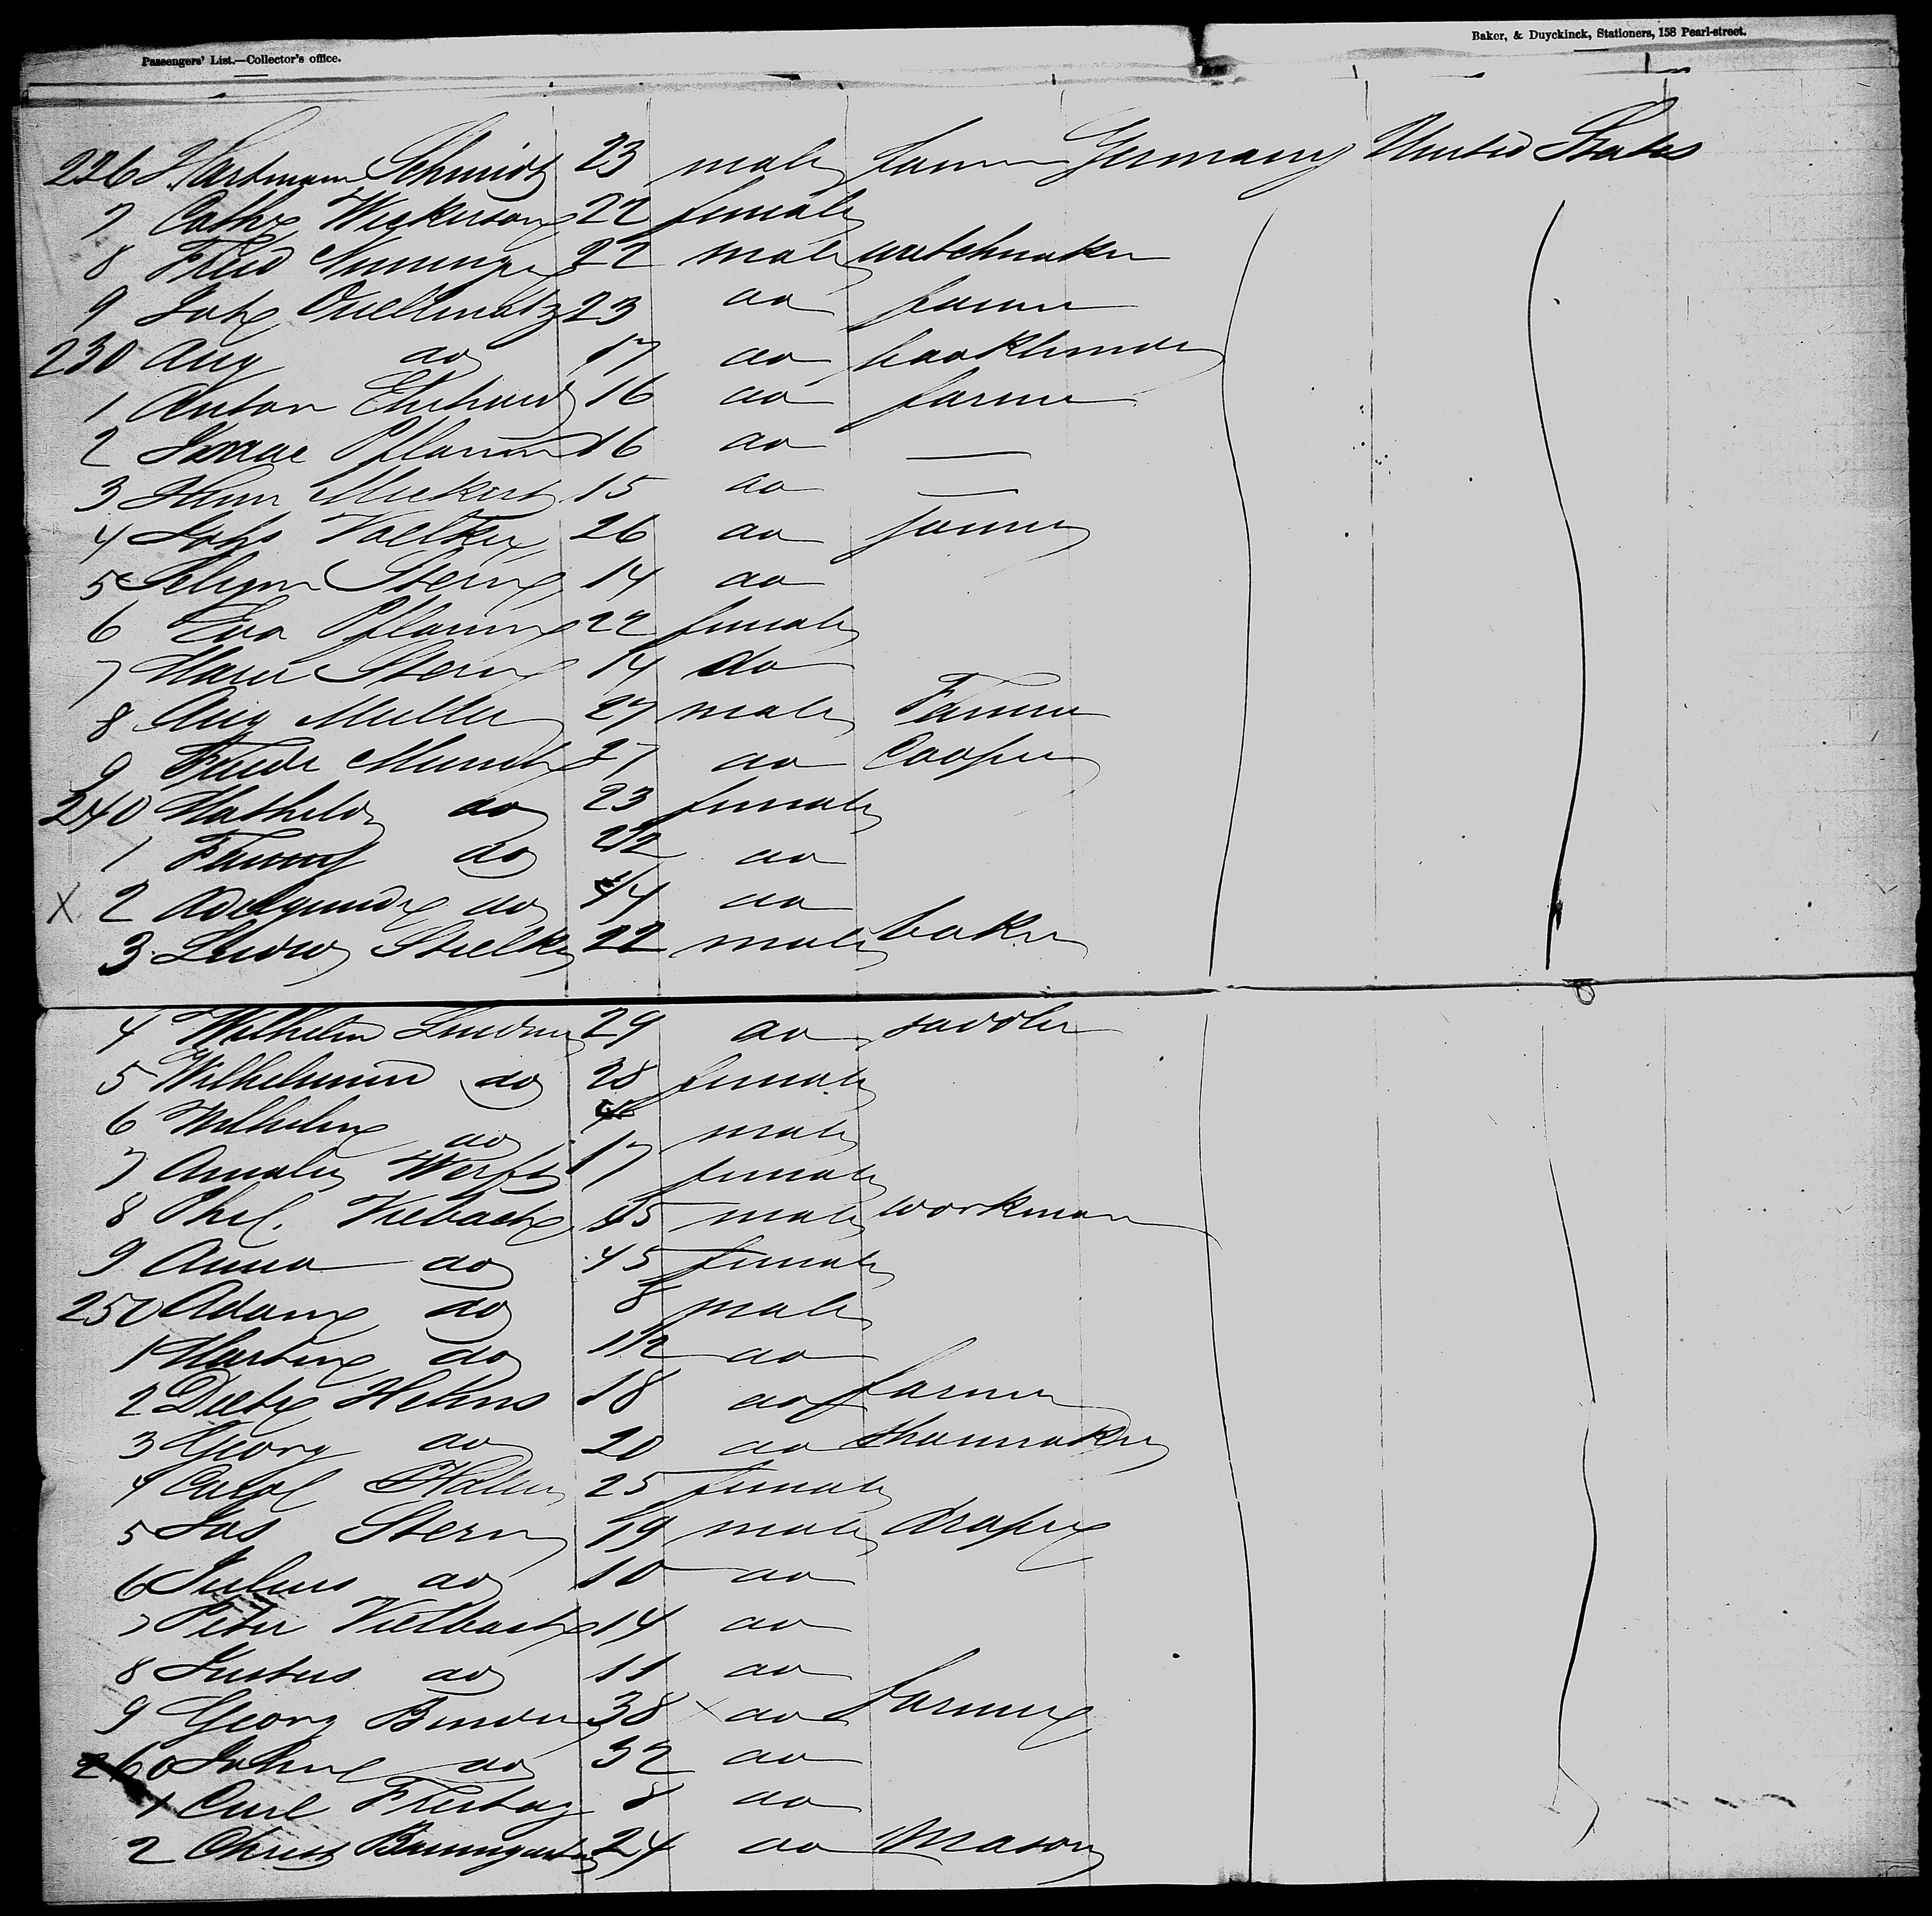 Passengers' List.—Collector's office.
Baker, & Duyckinck, Stationers, 158 Pearl-street.
226 Hartmann Schmidt 23 male farmer Germany United States
7 Cath 22 female
8 Fried 22 male watchmaker
9 Joh Quellmalz 23 do farmer
230 Aug do 17 do bookbinder
1 Anton 16 do farmer
2 Isaac Pflaum 16 do —
3 15 do —
4 Johs Voelker 26 do farmer
5 Stern 14 do
6 Eva Pflaum 22 female
7 Marie Stern 14 do
8 Aug Muller 27 male Farmer
9 do Cooper
240 Mathilde do 23 female
1 Fanny do do
X 2 Adelgunde do do
3 Ludw 22 male baker
4 Wilhelm 29 do saddler
5 Wilhelmine do 28 female
6 Wilhelm do male
7 Amalie 17 female
8 Phil. 45 male workman
9 Anna do 45 female
250 Adam do 8 male
1 Martin do do
2 Dietr Helms 18 do farmer
3 Georg do 20 do shoemaker
4 25 female
5 Jos Stern 19 male draper
6 Julius do 10 do
7 Peter 14 do
8 Justus do 11 do
9 Georg 38 do farmer
260 John do 32 do
1 Carl Freitag 8 do
2 Christ Baumgarten 24 do Mason